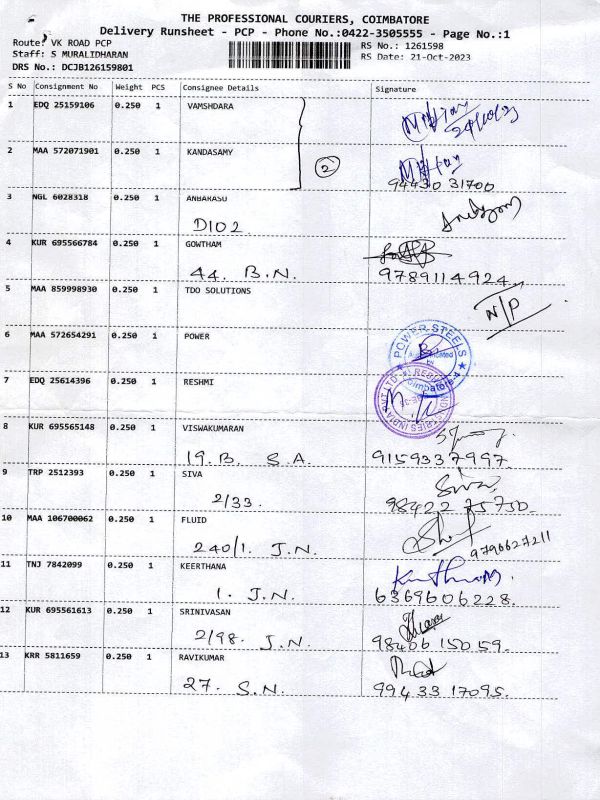 THE PROFESSIONAL COURIERS, COIMBATORE
Delivery Runsheet - PCP - Phone No.:0422-3505555 - Page No.:1
Route: VK ROAD PCP
RS No.: 1261598
Staff: S MURALIDHARAN
RS Date: 21-Oct-2023
DRS No.: DCJB126159801
S No Consignment No Weight PCS Consignee Details Signature
1 EDQ 25159106 0.250 1 VAMSHDARA
2 MAA 572071901 0.250 1 KANDASAMY
2
94430 31700
3 NGL 6028318 0.250 1 ANBARASU
D102
4 KUR 695566784 0.250 1 GOWTHAM
44. B.N. 9789114924.
5 MAA 859998930 0.250 1 TDO SOLUTIONS
N/P
6 MAA 572654291 0.250 1 POWER
POWER STEELS
Coimbatore-4
7 EDQ 25614396 0.250 1 RESHMI
8 KUR 695565148 0.250 1 VISWAKUMARAN
19. B. S.A. 9159337997
9 TRP 2512393 0.250 1 SIVA
Siva
2/33. 98422 75730.
10 MAA 106700062 0.250 1 FLUID
240/1. J.N. 9790627211
11 TNJ 7842099 0.250 1 KEERTHANA
1. J.N. 6369606228.
12 KUR 695561613 0.250 1 SRINIVASAN
2/98. J.N. 98406 15059.
13 KRR 5811659 0.250 1 RAVIKUMAR
27. S.N. 99433 17095.